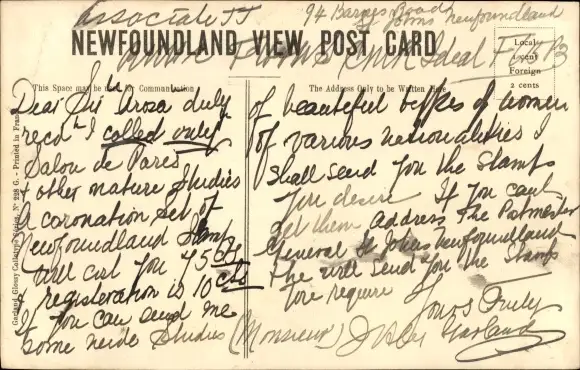 Associate JJ
94 Barnes Road
St Johns Newfoundland
NEWFOUNDLAND VIEW POST CARD
Ideal
Local
1 cent
Foreign
2 cents
This Space may be used for Communication
The Address Only to be Written Here
Garland Glossy Collotype Series, Nº 228 G. - Printed in France
Dear Sir
duly
recd I called only
Salon de Paris
& other nature Studies
A coronation set of
Newfoundland Stamps
will cost you 45 cts
& registeration is 10 cts
If you can send me
some nude Studies (Monsieur)
of beautiful types of women
of various nationalities I
shall send you the Stamps
you desire If you cant
get them address The Postmaster
General St Johns Newfoundland
& he will send you the Stamps
you require
Yours Truly
Garland